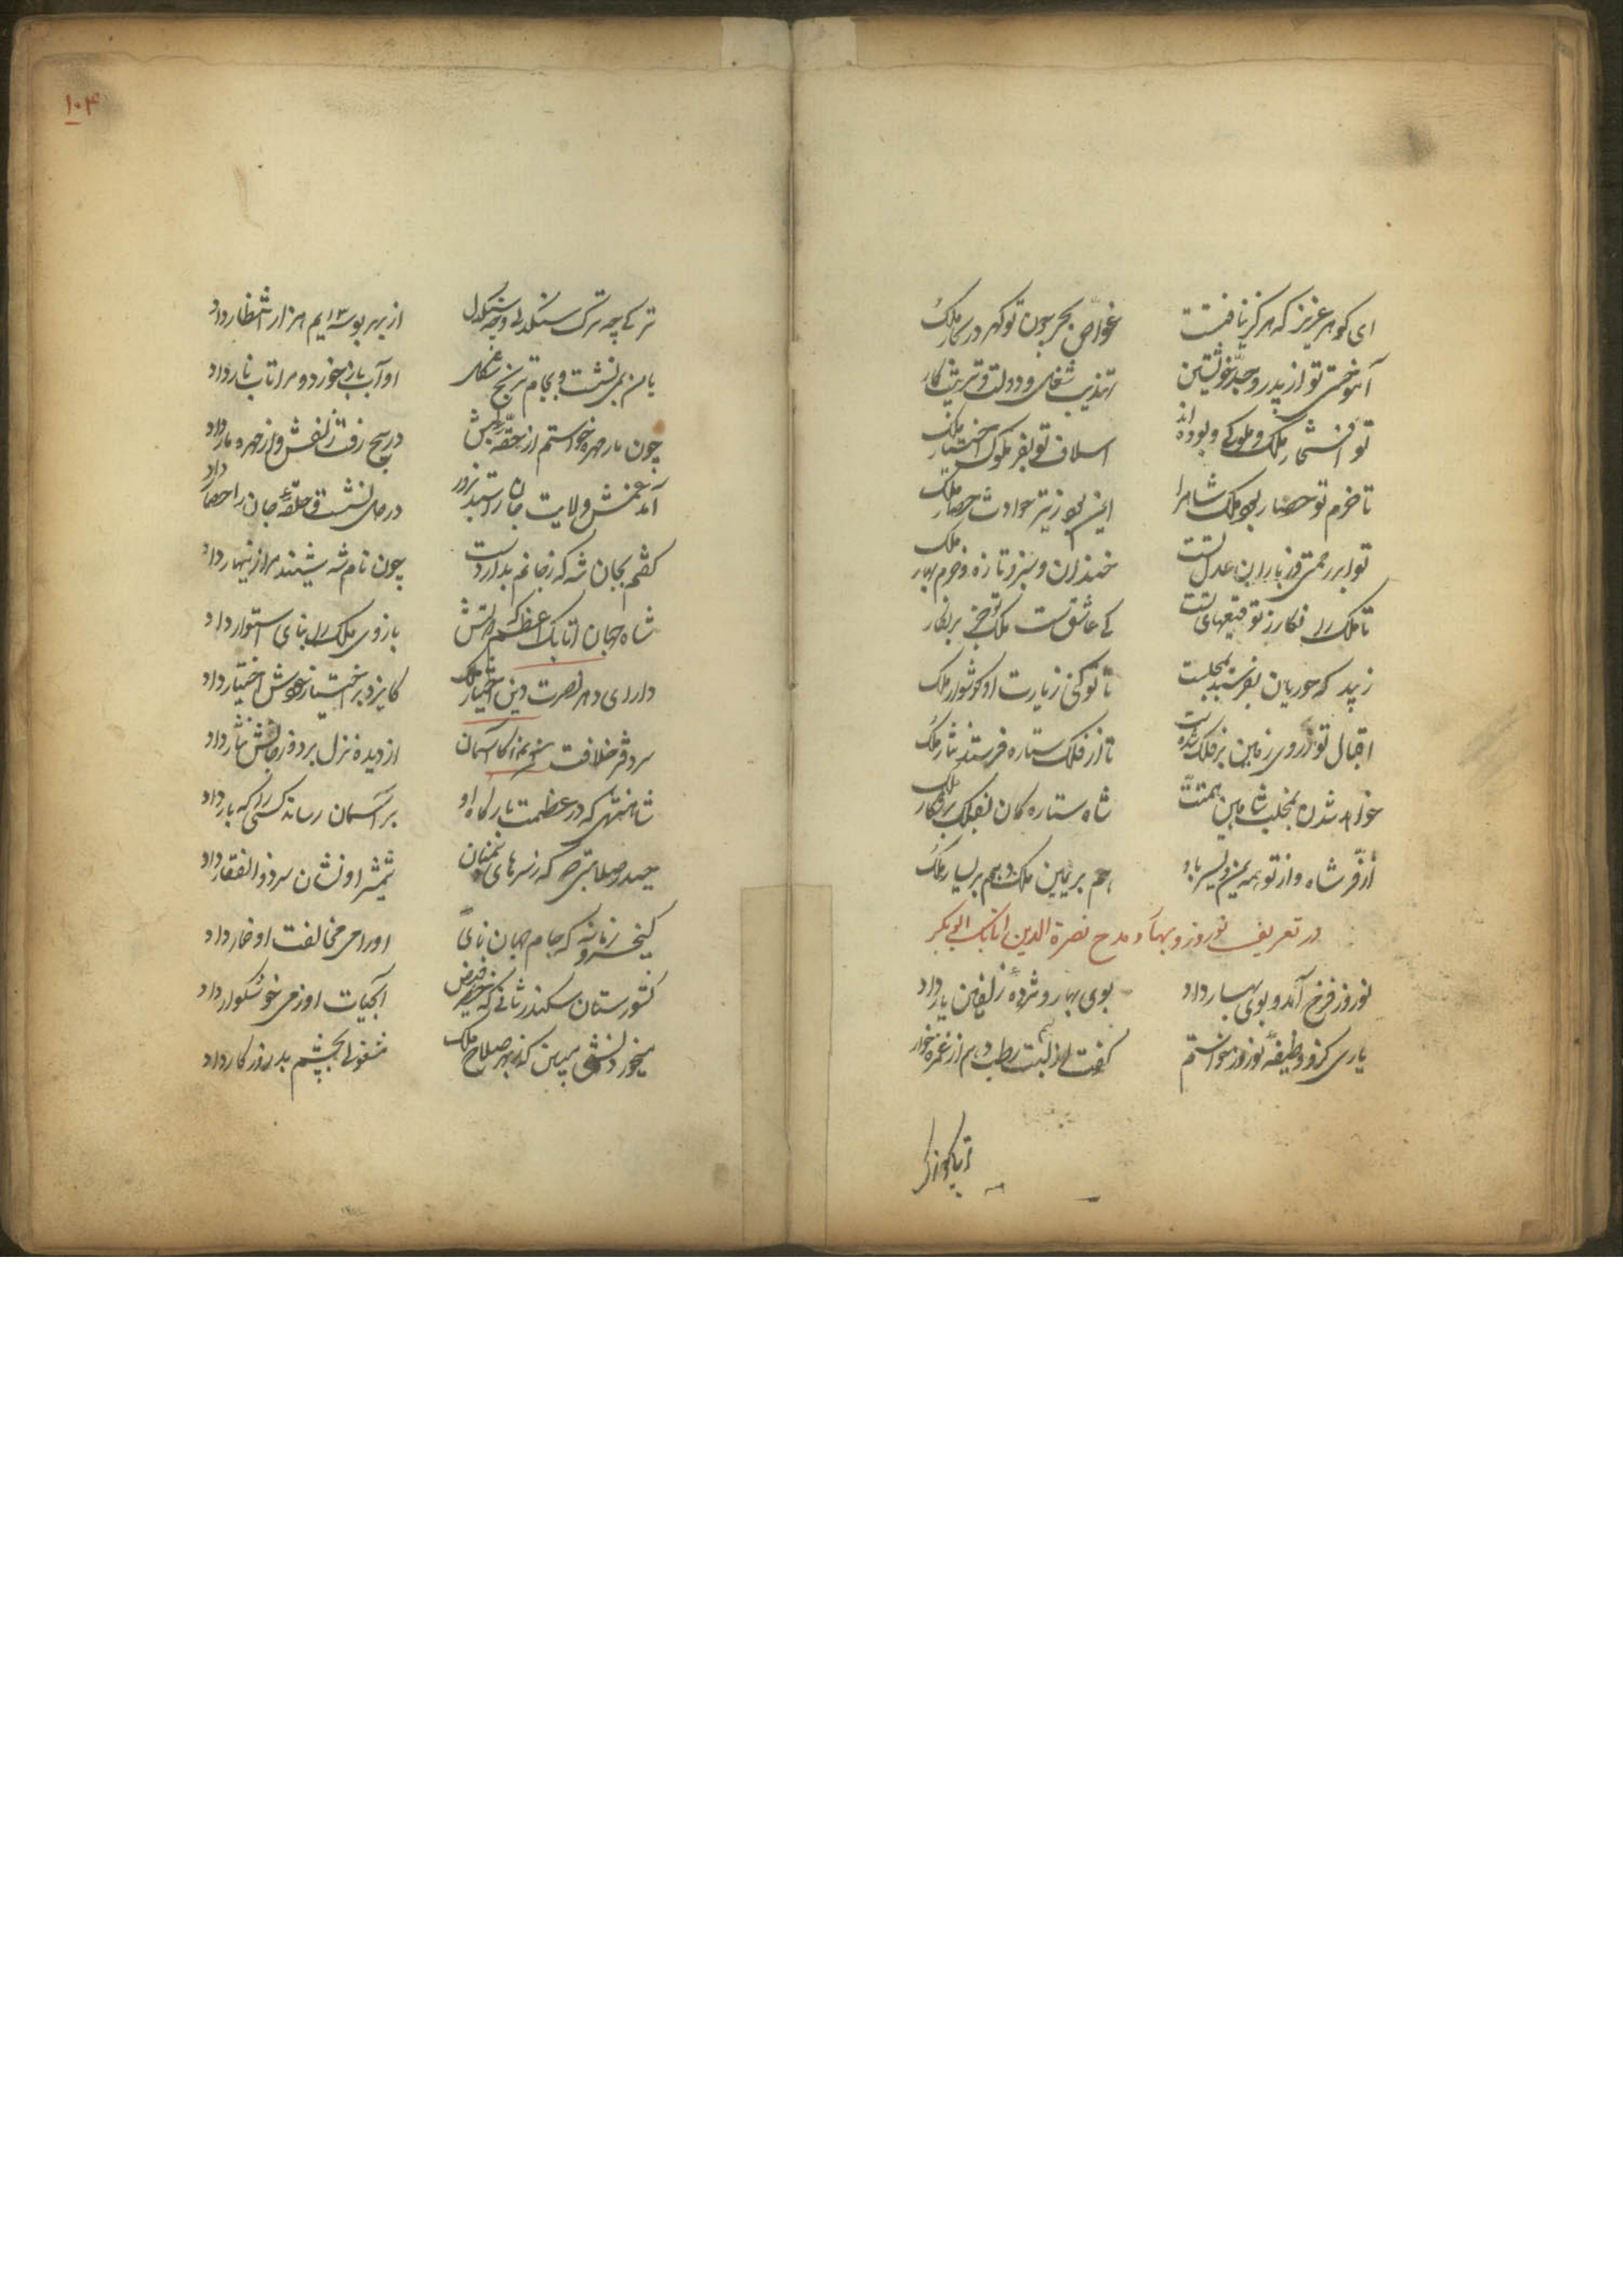 ای گوهر عزیز که هرگز نیافتست
غواص بحر چون تو گهر در کنار ملک
آموختی تو از پدر و جد خویشتن
تهذیب شغل و دولت و ترتیب کار
تو افتخار ملک و ملوکی و بوده اند
اسلاف تو بفخر ملوک اختیار ملک
تا حزم تو حصار بود ملک شاه را
ایمن بود ز تیر حوادث حصار ملک
تو ابر رحمتی و ز باران عدل تست
خندان و سبز و تازه و خرم بهار ملک
تا ملک را نگار ز توقیعهای تست
عاشق ست ملک تو بر نگار
زیبد که حوریان بفرستند بمجلست
تا تو کنی زیارت او گوشوار ملک
اقبال تو ز روی زمین بر فلک شدست
تا از فلک ستاره فرستد نثار ملک
خواهد شدن بمخلب شاهین همتت
شاه ستاره گان بفلک بر شکار ملک
از فر شاه و از تو همه یمن و یسر باد
هم بر یمین ملک و هم بر یسار ملک
در تعریف نوروز و بهار و مدح نصرة الدین اتابک ابی بکر
نوروز فرخ آمد و بوی بهار داد
بوی بهار مژدهٔ زلفین یار داد
یاری کزو وظیفهٔ نوروز خواستم
گفت از لبت رطب دهم از غمزه خار
۱۰۴
ترکی چه ترک سنگدلی و چه سنگدل
از بهر بوسه ایم هزار انتظار داد
با من بمی نشست و بجام ترنج
او آب نار خورد و مرا تاب نار داد
چون مار مهره خواستم از حقهٔ لبش
در پیچ رفت زلفش و از مهره مار داد
آمد غمش ولایت جان را ستد بزور
در دل نشست و حلقهٔ جان را حصار داد
گفتم بجان شه که ز جانم بدار دست
چون نام شه شنید مرا زینهار داد
شاه جهان اتابک اعظم که دولتش
بازوی ملک را بنای استوار داد
دارای دهر نصرت دین اختیار ملک
کایزد بر اختیار خودش اختیار داد
سردفتر خلافت کاسمان
از دیده نزل برد و ز جانش نثار داد
شاهنشهی که در عظمت بارگاه او
بر آسمان رساند کسی را که بار داد
حیدر صلابتی که ز سرهای دشمنان
شمشیر او نشان سر ذوالفقار داد
کیخسرو زمانه که جام جهان نمای
او را می مخالفت او خمار داد
کشورستان سکندر ثانی که خضر
آبحیات او ز می خوشگوار داد
بین که بهر صلاح ملک
مشغولی بچشم بد روزگار داد